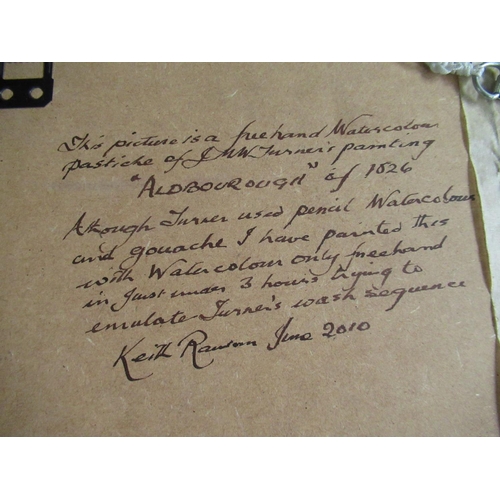 This picture is a freehand Watercolour
pastiche of J M W Turner's painting
"ALDBOUROUGH" of 1826
Athough Turner used pencil Watercolour
and gouache I have painted this
with Watercolour only freehand
in just under 3 hours trying to
emulate Turner's wash sequence
Keith Ransom June 2010